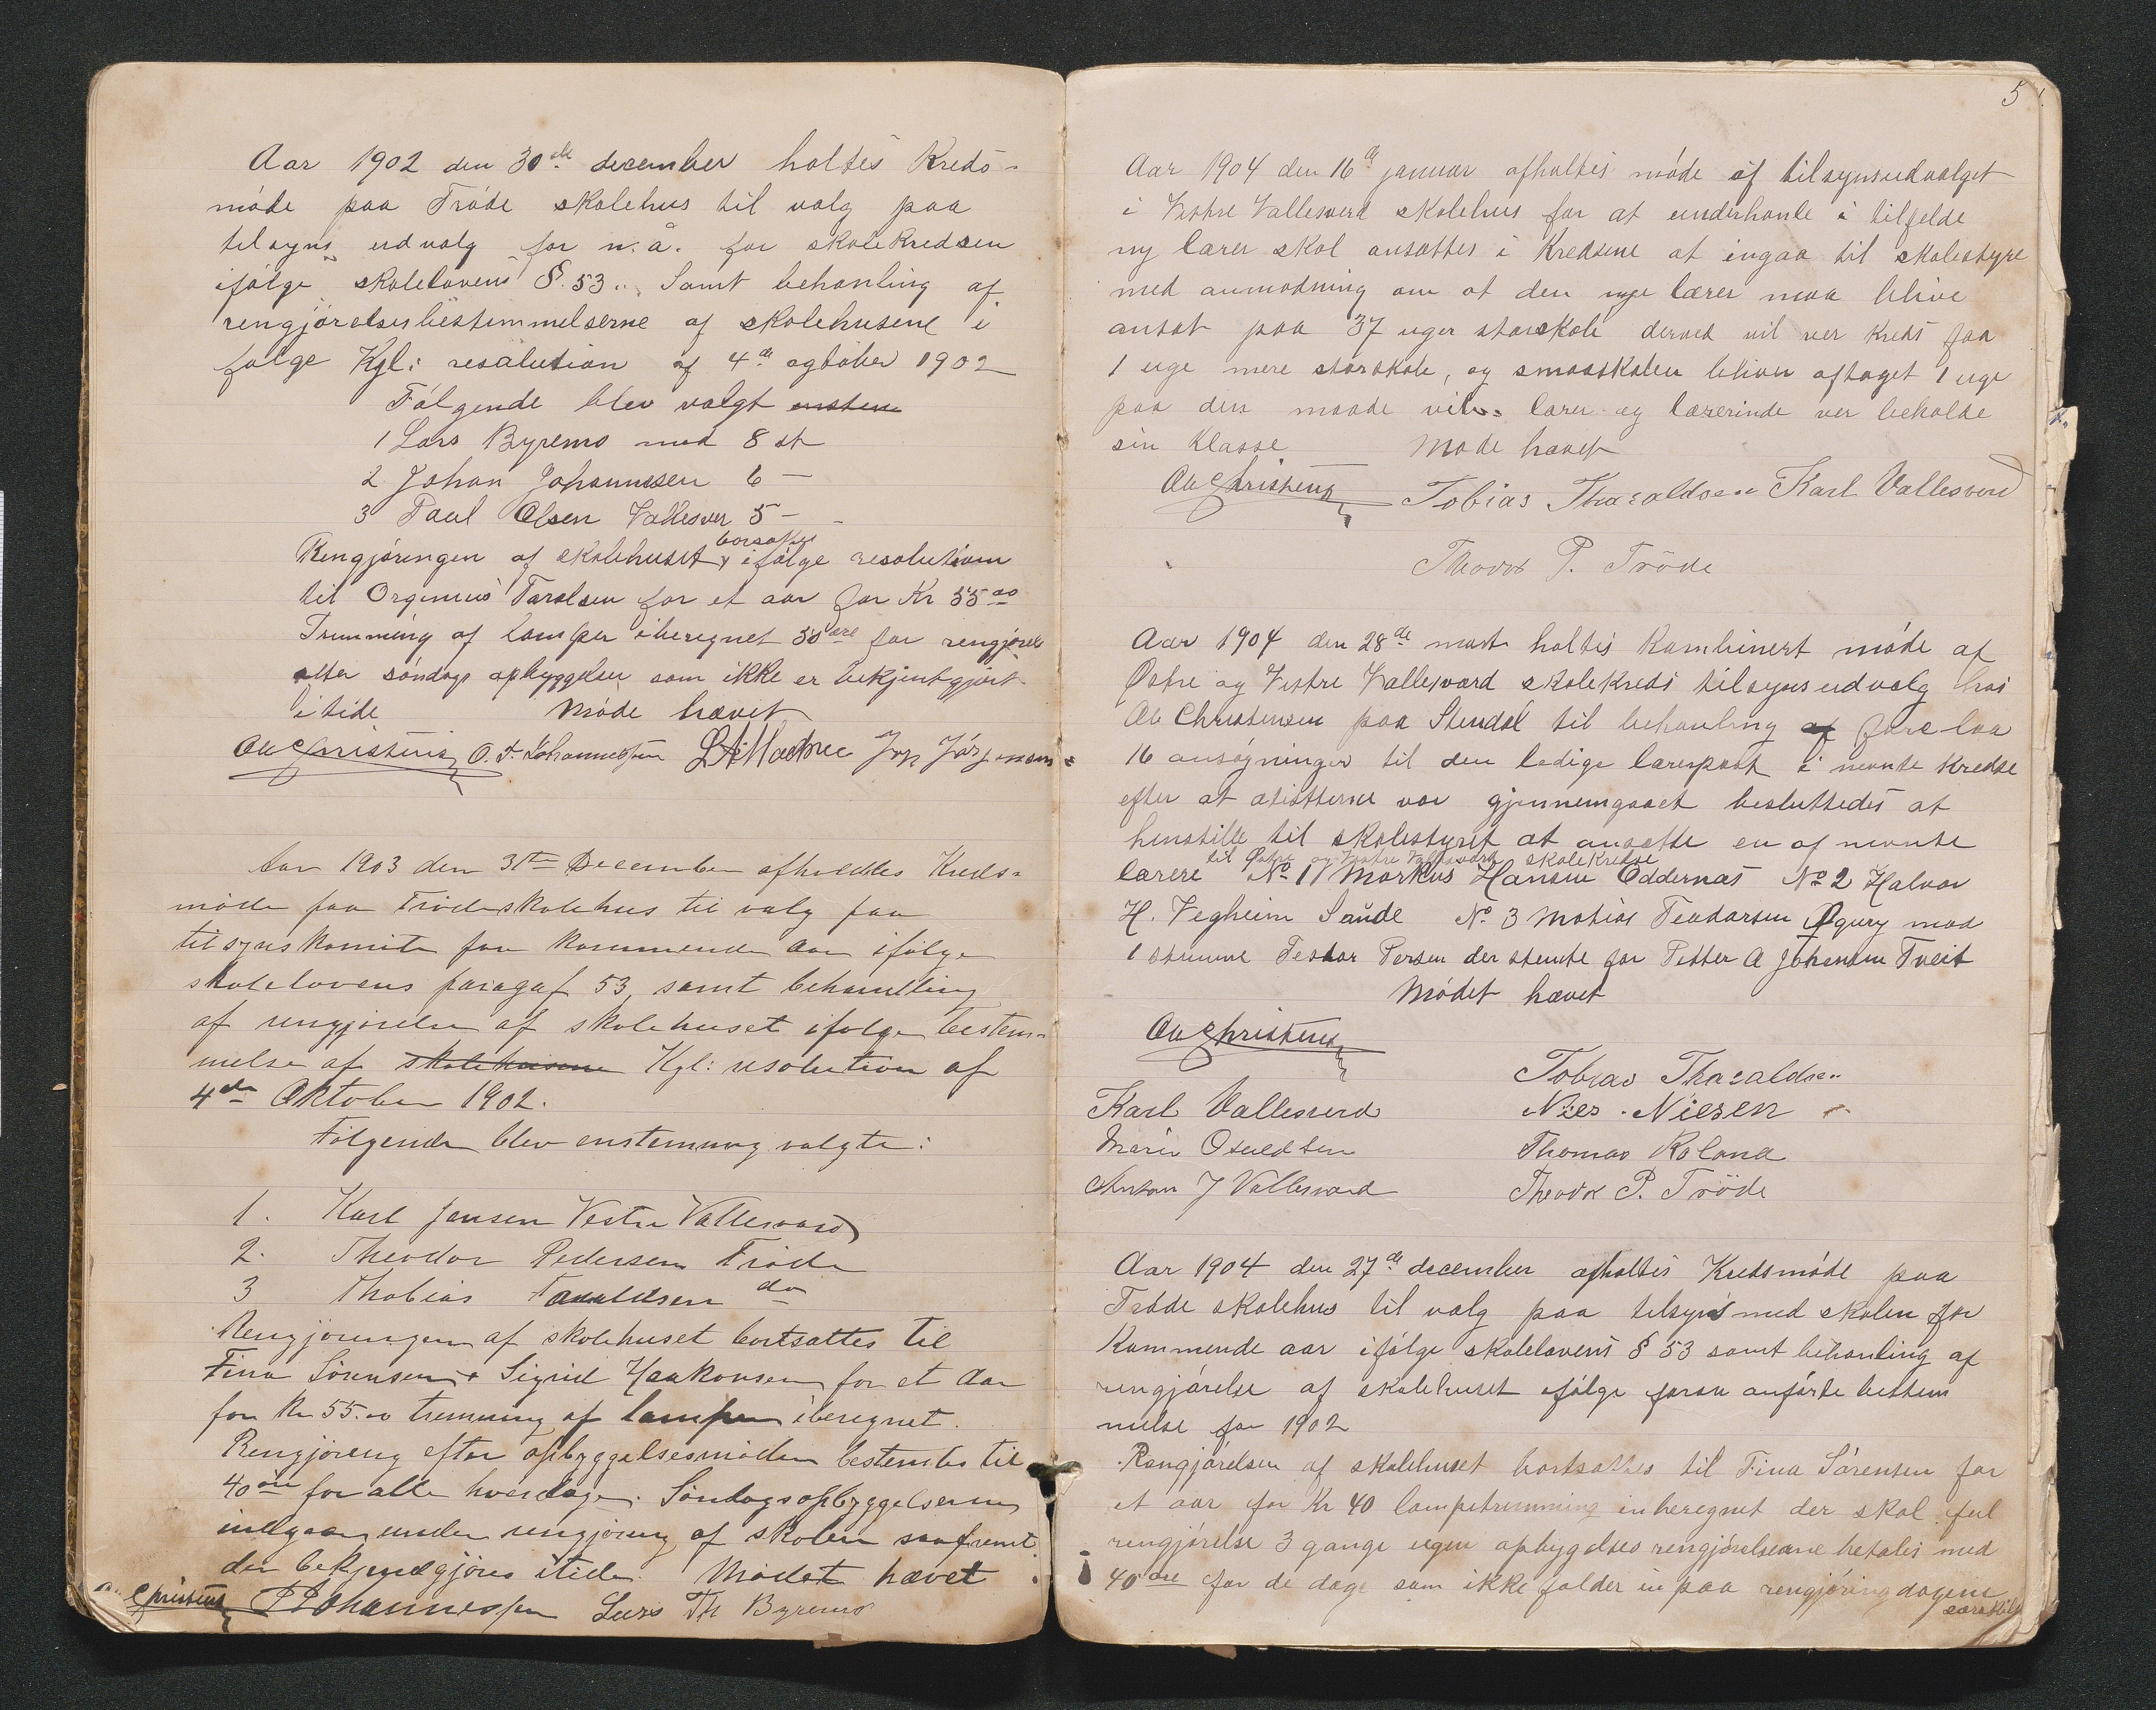 Aar 1902 den 30de december holtes Kreds-
møde paa Trøde skolehus til valg paa
tilsyns udvalg for n. å. for skolekredsen
ifølge skolelovens §. 53. Samt behanling af
rengjørelsesbestemmelserne af skolehusene i
følge Kgl: resolution af 4de ogtober 1902
Følgende blev valgt
1 Lars Byremo med 8 st
2 Johan Johannesen 6 —
3 Paul Olsen Vallesver 5 —
borsattes
Rengjøringen af skolehuset ifølge resolution
til Orgenius Taralsen for et aar for Kr 55 00
Trimming af lamper iberegnet 50 øre for rengjørelse
etter søndags opbyggelser som ikke er bekjentgjort
i tide Møde hævet
Ole Christens O. T. Johannessen Jørgensen
Aar 1903 den 31te December afholdtes Kreds-
møde paa Trøde skolehus til valg paa
tilsynskomite for kommende aar ifølge
skolelovens paragaf 53, samt behandling
af rengjørelse af skolehuset ifølge bestem-
melse af skolehusene Kgl: resolution af
4de Oktober 1902.
Følgende blev enstemmig valgte:
1. Karl Jensen Vestre Vallesværd
2. Theodor Pedersen Trøde
3 Thobias Taraldsen do
Rengjøringen af skolehuset bortsattes til
Fina Sørensen & Sigrid Haakonsen for et Aar
for Kr 55.00 trimming af lamper iberegnet.
Rengjøring efter opbyggelsesmøder bestemtes til
40 øre for alle hverdage. Søndagsopbyggelserne
indgaar under rengjøring af skolen saafremt
der bekjendgjøres itide. Mødet hævet
Christens Johannessen Lars Th Byremo
5
Aar 1904 den 16de januar afholtes møde af tilsynsudvalget
i Vestre Vallesverd skolehus for at underhanle i tilfelde
ny lærer skal ansættes i Kredsene at ingaa til skolestyre
med anmodning om at den nye lærer maa blive
ansat paa 37 uger storskole derved vil ver kreds faa
1 uge mere storskole, og smaaskolen bliver aftaget 1 uge
paa den maade vil lærer og lærerinde ver beholde
sin Klasse Møde hævet
Ole Christens Tobias Tharaldsen Karl Vallesverd
Theodor P. Trøde
Aar 1904 den 28de mars holtes kombinert møde af
Østre og Vestre Vallesværd skolekreds tilsynsudvalg hos
Ole Christensen paa Stendal til behanling af forelaa
16 ansøgninger til den ledige lærerpost i nevnte kredse
efter at atisterne var gjennemgaaet besluttedes at
henstille til skolestyret at ansætte en af nevnte
til Østre og Vestre Vallesværd skolekredse
lærere No 1 Markus Hansen Oddernæs No 2 Halvor
H. Vegheim Saude No 3 Matias Teodorsen mod
1 stemme Teodor Persen der stemte for Petter A Johensen Tveit
Mødet hævet
Ole Christens
Tobias Tharaldsen
Karl Vallesverd Nils Nilsen
Marie Osuldsen Thomas Roland
Anton J Vallesværd Theodor P. Trøde
Aar 1904 den 27de december afholtes Kredsmøde paa
Trøde skolehus til valg paa tilsyns med skolen for
Kommende aar ifølge skolelovens § 53 samt behanling af
rengjørelse af skolehuset ifølge foran anførte bestem
melse for 1902
Rengjørelsen af skolehuset bortsattes til Fina Sørensen for
et aar for Kr 40 lampetrimming inberegnet der skal ful
rengjørelse 3 gange ugen opbygelses rengjørelserne betales med
40 øre for de dage som ikke falder in paa rengjøringdagene